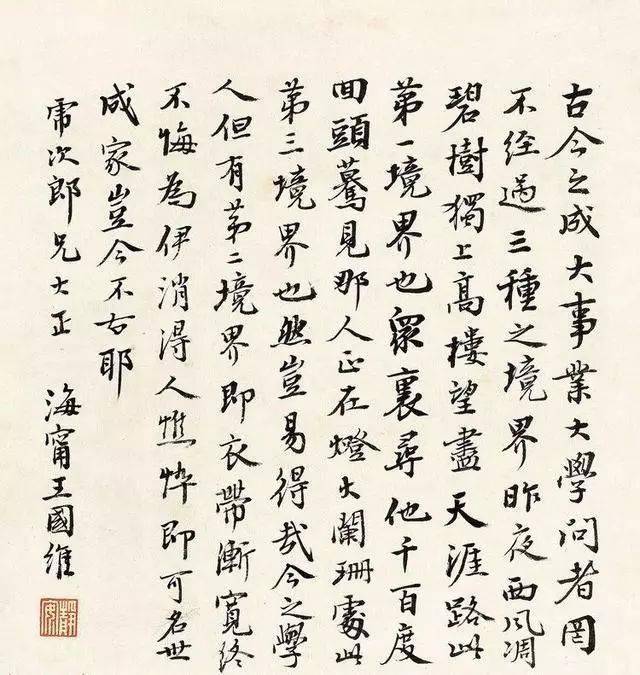 古今之成大事業大學問者罔
不經過三種之境界昨夜西風凋
碧樹獨上高樓望盡天涯路此
第一境界也眾裏尋他千百度
回頭驀見那人正在燈火闌珊處此
第三境界也然豈易得哉今之學
人但有第二境界即衣帶漸寬終
不悔為伊消得人憔悴即可名世
成家豈今不古耶
虎次郎兄大正
海甯王國維